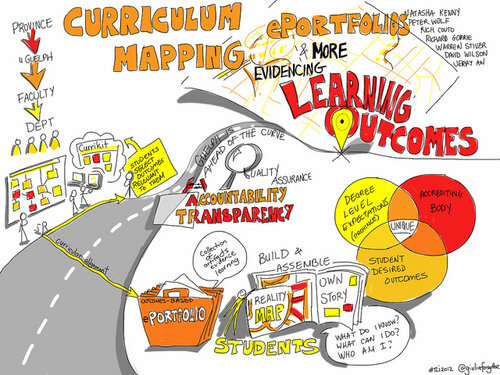 PROVINCE
U GUELPH
FACULTY
DEPT
CURRICULUM
MAPPING
ePORTFOLIOS
& MORE
EVIDENCING
LEARNING
OUTCOMES
NATASHA KENNY
PETER WOLF
RICH COUTO
RICHARD GORRIE
WARREN STIVER
DAVID WILSON
JERRY AN
Currikit
STUDENTS
SELECT
OUTCOMES
RELEVANT
TO THEM
GUELPH IS
AHEAD OF THE CURVE
QUALITY
ASSURANCE
ACCOUNTABILITY
TRANSPARENCY
curriculum alignment
Collection
of
artifacts
evidence
learning
OUTCOMES-BASED
ePORTFOLIO
BUILD &
ASSEMBLE
REALITY
MAP
OWN
STORY
STUDENTS
WHAT DO I KNOW?
WHAT CAN I DO?
WHO AM I?
DEGREE
LEVEL
EXPECTATIONS
(PROVINCE)
ACCREDITING
BODY
UNIQUE
STUDENT
DESIRED
OUTCOMES